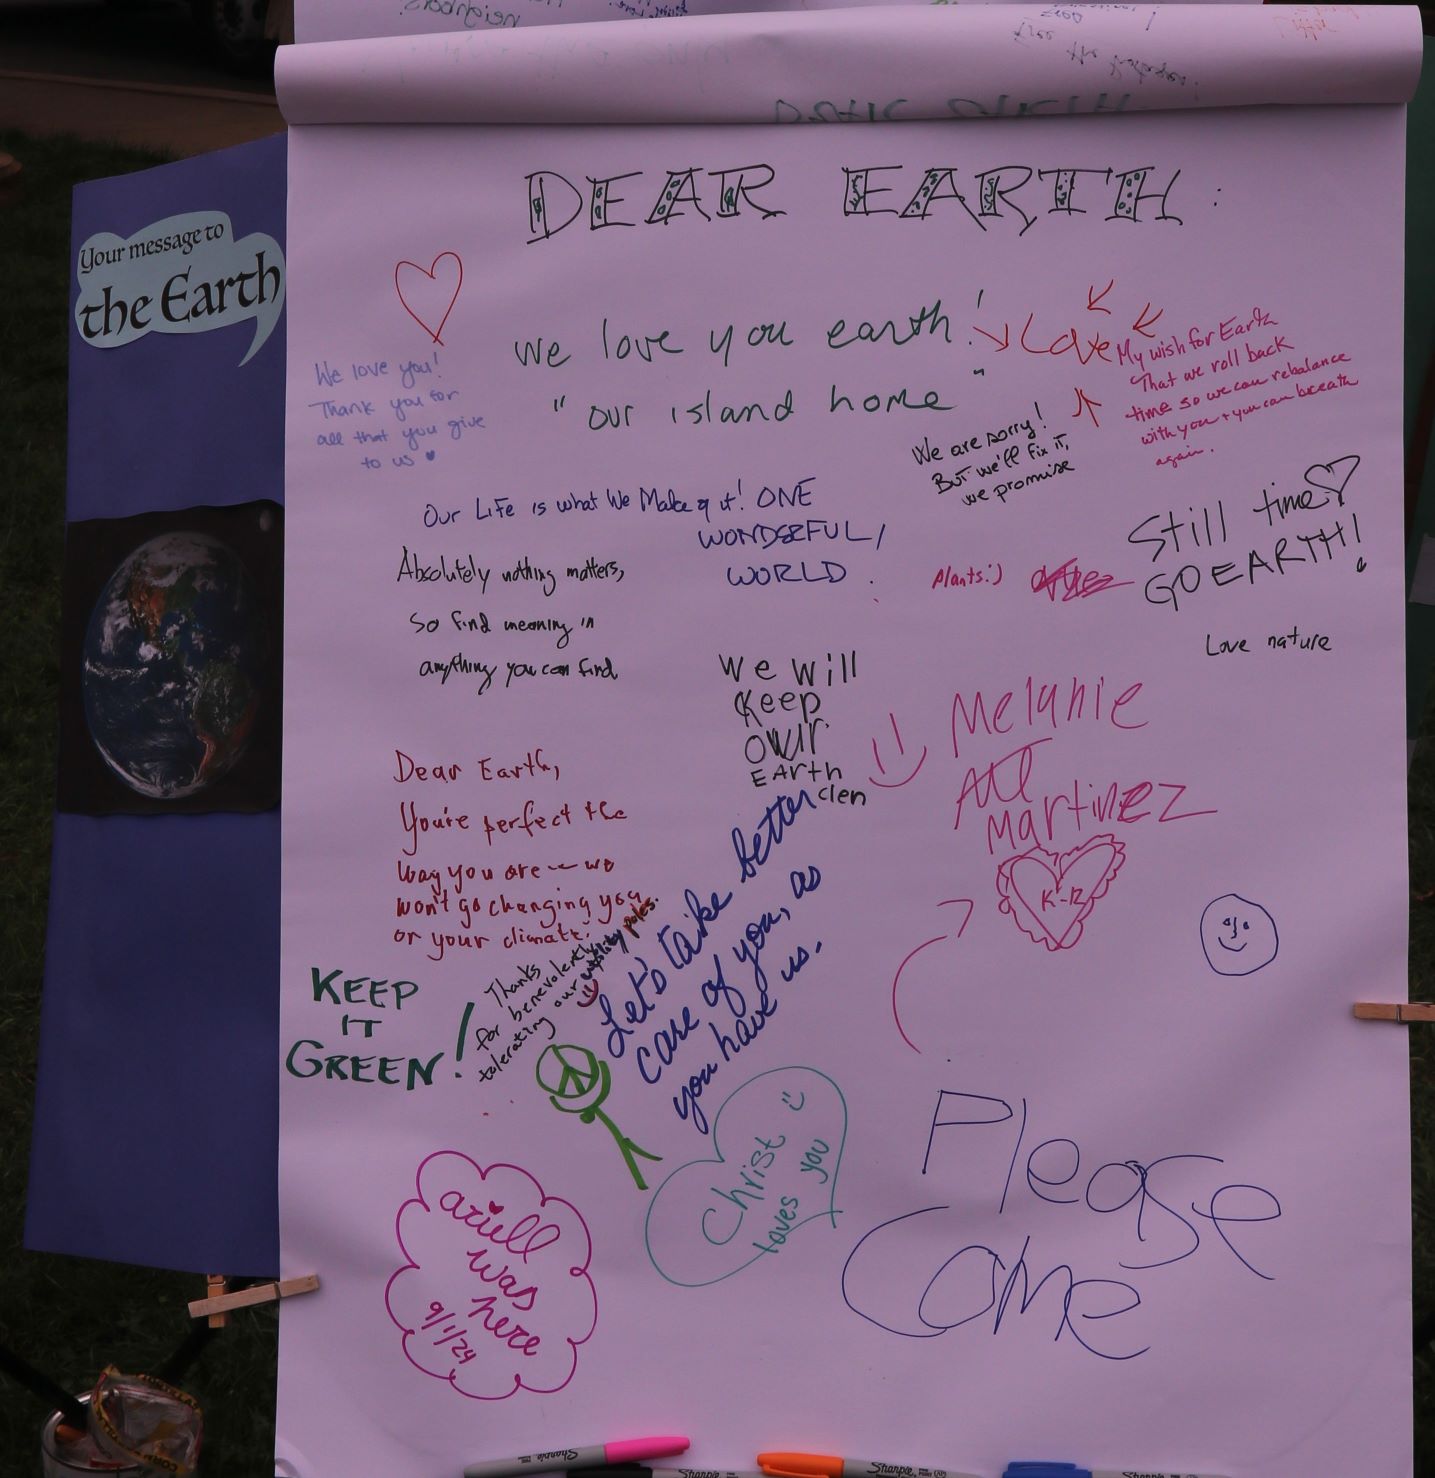 neighbors!
Free the
DEAR EARTH:
Your message to
the Earth
We love you earth!
"our island home"
Love
We love you!
Thank you for
all that you give
to us
My wish for Earth
That we roll back
time so we can rebalance
with you + you can breath
again.
We are sorry!
But we'll fix it,
we promise
Our Life is what We Make of it! ONE
WONDERFUL,
WORLD.
Still time
GO EARTH!
Absolutely nothing matters,
so find meaning in
anything you can find
Plants:)
Love nature
We will
Keep
owr
EArth
clen
Melanie
Martinez
K-12
Dear Earth,
You're perfect the
way you are — we
won't go changing you
or your climate.
Thanks
for benevolently
tolerating our utility poles.
KEEP
IT
GREEN!
Let's take better
care of you, as
you have us.
Christ
loves you
Please
Come
ariell
was
here
9/1/24
Sharpie
Sharpie
Sharpie
Sharpie